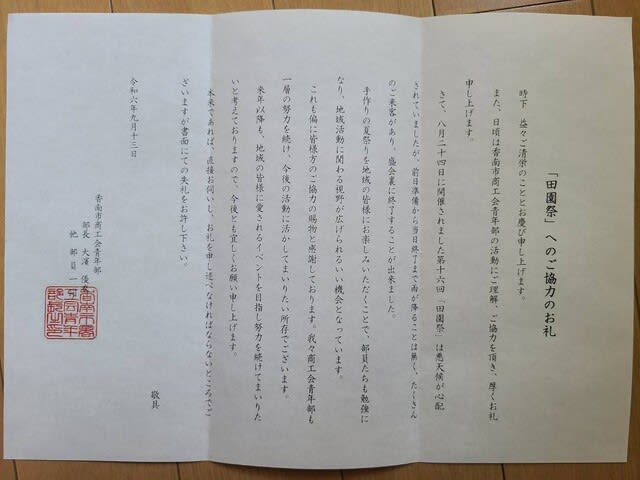 「田園祭」へのご協力のお礼
時下　益々ご清栄のこととお慶び申し上げます。
また、日頃は香南市商工会青年部の活動にご理解、ご協力を頂き、厚くお礼
申し上げます。
さて、八月二十四日に開催されました第十六回「田園祭」は悪天候が心配
されていましたが、前日準備から当日終了まで雨が降ることは無く、たくさん
のご来客があり、盛会裏に終了することが出来ました。
手作りの夏祭りを地域の皆様にお楽しみいただくことで、部員たちも勉強に
なり、地域活動に関わる視野が広げられるいい機会となっています。
これも偏に皆様方のご協力の賜物と感謝しております。我々商工会青年部も
一層の努力を続け、今後の活動に活かしてまいりたい所存でございます。
来年以降も、地域の皆様に愛されるイベントを目指し努力を続けてまいりた
いと考えておりますので、今後とも宜しくお願い申し上げます。
本来であれば、直接お伺いし、お礼を申し述べなければならないところでご
ざいますが書面にての失礼をお許し下さい。
敬具
令和六年九月十三日
香南市商工会青年部
部長　大濱　優
他　部員一